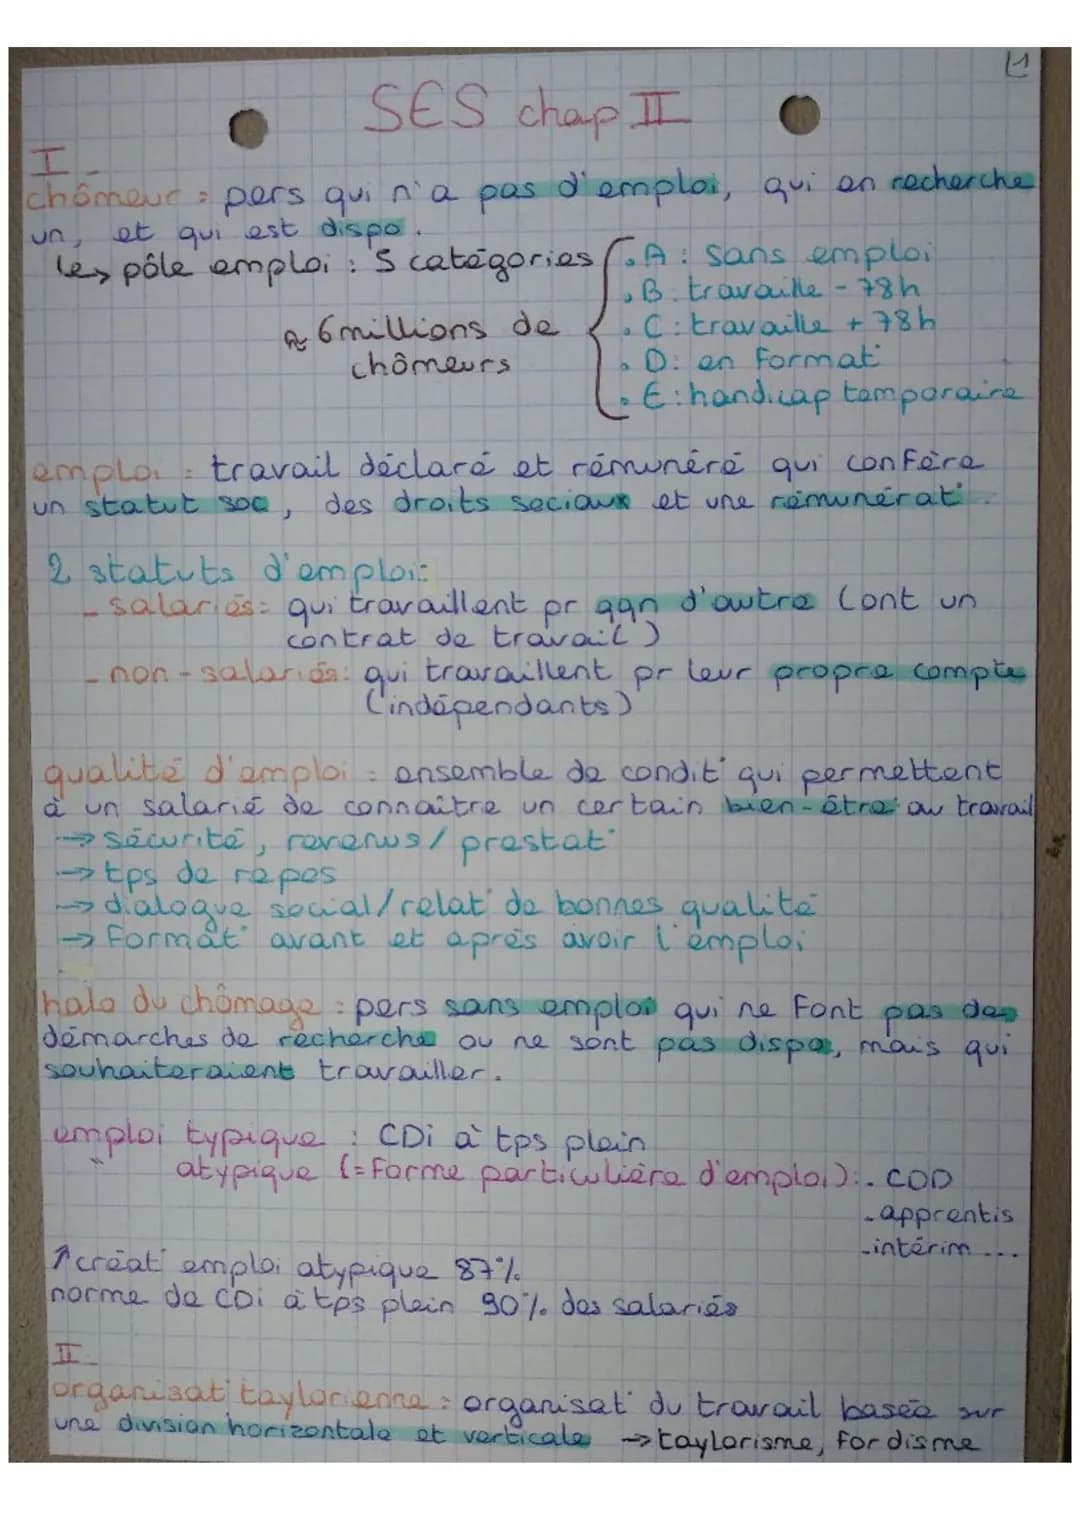 L1
SES chap II
I -
chômeur : pers qui n'a pas d'emploi, qui en recherche
un, et qui est dispo.
pôle emploi : 5 catégories
≈ 6 millions de
chômeurs
. A : sans emploi
. B : travaille - 78h
. C : travaille + 78h
. D : en format°
. E : handicap temporaire
emploi : travail déclaré et rémunéré qui confère
un statut soc, des droits sociaux et une rémunérat°.
2 statuts d'emploi :
- salariés : qui travaillent pr qqn d'autre (ont un
contrat de travail)
- non-salariés : qui travaillent pr leur propre compte
(indépendants)
qualité d'emploi : ensemble de condit° qui permettent
à un salarié de connaître un certain bien-être au travail
→ sécurité, revenus/prestat°
→ tps de repos
→ dialogue social/relat° de bonnes qualité
→ format° avant et après avoir l'emploi
halo du chômage : pers sans emploi qui ne font pas des
démarches de recherche ou ne sont pas dispo, mais qui
souhaiteraient travailler.
emploi typique : CDi à tps plein
" atypique (= forme particulière d'emploi) : - CDD
- apprentis
- intérim ...
↑ créat° emploi atypique 87%
norme de CDi à tps plein 90% des salariés
II -
organisat° taylorienne : organisat° du travail basée sur
une division horizontale et verticale → taylorisme, fordisme